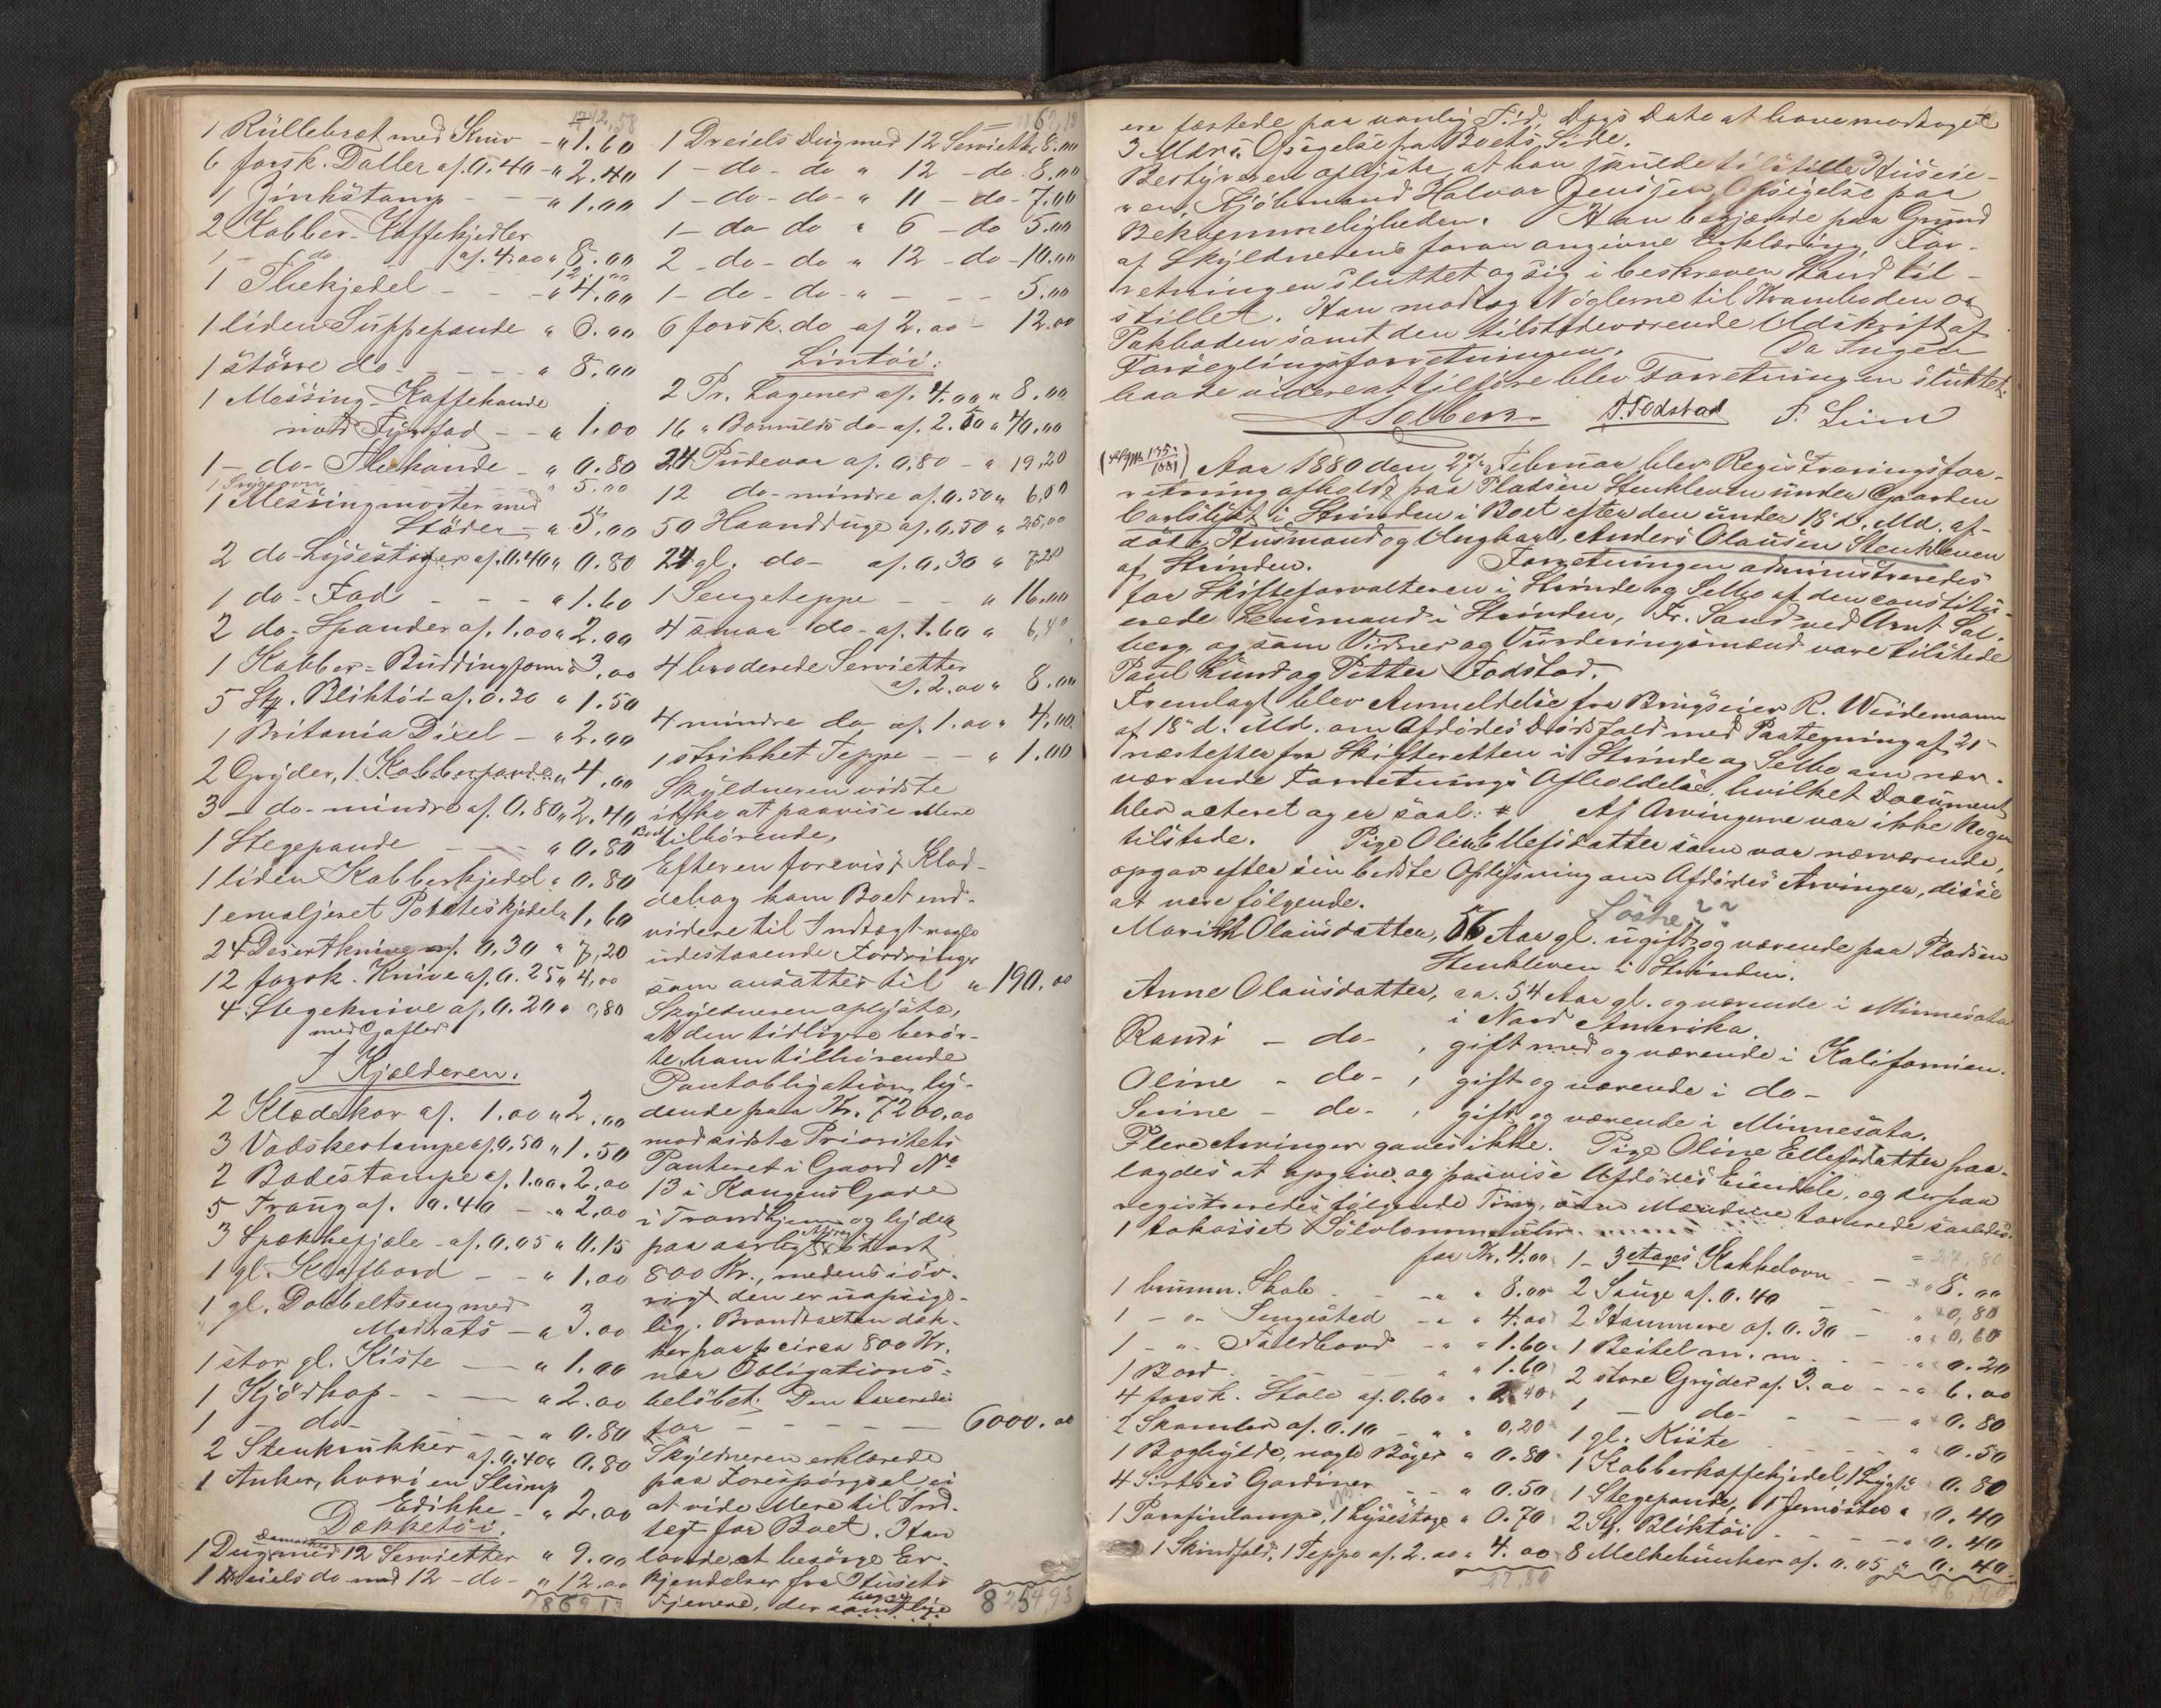 1712,58
1 Rullebræt med Kniv - " 1.60
6 forsk. Daller af. 0.40 - " 2.40
1 Zinkstamp - - " 1.00
2 Kobber-Kaffekjedler
af. 4.00 " 8.00
1 - do 12.00
1 Thekjedel - - - " 4.00
1 liden Suppepande " 6.00
1 större do - - - - " 8.00
1 Messing-Kaffekande
med Fyrfad - - " 1.00
1 - do - Thekande - " 0.80
1 Messingmorter med " 5.00
Stöder - " 3.00
2 do Lysestager af. 0.40 " 0.80
1 do - Fad - - - " 1.60
2 do - Spander af. 1.00 " 2.00
1 Kobber-Buddingform " 3.00
5 Stk. Bliktöi af. 0.30 " 1.50
1 Britania Dixel - " 2.00
2 Gryder, 1 Kobberpande " 4.00
3 - do - mindre af. 0.80 " 2.40
1 Stegepande - - " 0.80
1 liden Kobberkjedel " 0.80
1 emaljeret Poteteskjedel " 1.60
24 Desertknive af. 0.30 " 7,20
12 forsk. Knive af. 0.25 " 4,00
4 Stegeknive af. 0.20 " 0,80
med Gafler
I Kjælderen.
2 Klædekar af. 1.00 " 2.00
3 Vadskestampe af. 0.50 " 1.50
2 Badestampe af. 1.00 " 2.00
5 Traug af. 0.40 - " 2.00
3 Spækkefjæle - af. 0.05 " 0.15
1 gl. Klafbord - - " 1.00
1 gl. Dobbeltseng med
Madrats - " 3.00
1 stor gl. Kiste - " 1.00
1 Kjödkop - - - " 2.00
1 - do - - - " 0.80
2 Stenkrukker af. 0.40 " 0.80
1 Anker, hvori en Slump
Edikke - " 2.00
Dækketöi.
1 Damaskes Dug med 12 Servietter " 9.00
1 Dreiels do med 12 - do - " 12.00
1869.13
1869,13
1 Dreiels Dug med 12 Servietter 8.00
1 - do - do " 12 - do 8.00
1 - do - do - " 11 - do - 7.00
1 - do do " 6 - do 5.00
2 - do - do " 12 - do - 10.00
1 - do - do - " - - - 5.00
6 forsk. do af 2.00 - 12.00
Lintöi:
2 Pr. Lagener af. 4.00 " 8.00
16 " Bomulds do af. 2.50 " 40.00
24 Pudevar af. 0,80 - " 19,20
12 do - mindre af. 0.50 " 6,00
50 Haandduge af. 0,50 " 25,00
24 gl. do - af. 0,30 " 7.20
1 Sengeteppe - - " 16.00
4 smaa do - af. 1.60 " 6,40
4 broderede Servietter
af. 2.00 " 8.00
4 mindre do af. 1.00 " 4.00
1 strikket Teppe - - " 1.00
Skyldneren vidste
ikke at paavise mere
Boet tilhörende,
Efter en forevist Klad-
debog kom Boet end-
videre til Indtægt nogle
udestaaende Fordringer
som ansattes til " 190.00
Skyldneren oplyste,
at den tidligere berör-
te, ham tilhörende
Pantobligation, ly-
dende paa Kr. 7200.00
mod sidste Prioritets
Panteret i Gaard No
13 i Kongens Gade
i Trondhjem og lyder
paa aarligt Afdrag stort
800 Kr., medens i öv-
rigt den er uopsige-
lig. Brandtaxten dæk-
ker paa circa 800 Kr.
nær Obligations-
belöbet. Den taxeredes
for - - - - - 6000.00
Skyldneren erklærede
paa Forespörgsel ei
at vide Mere til Ind-
tægt for Boet. Han
lovede at besörge Er-
kjendelser fra Husets
Tjenere, der samtlige
8254,93
ere fæstede paa vanlig Tid, Dags Dato at have modtaget
3 Mdrs. Opsigelse fra Boets Side.
Bestyreren oplyste, at han skulde tilstille Huseie-
ren, Kjöbmand Halvor Jenssen, Opsigelse paa
Bekvemmeligheden. Han begjærede paa Grund
af Skyldnerens foran angivne Erklæring For-
retningen sluttet og sig i beskreven Stand til-
stillet. Han modtog Nöglerne til Kramboden og
Pakboden samt den tilstedeværende Udskrift af
Forseglingsforretningen. Da Ingen
havde videre at tilföre blev Forretningen sluttet.
A Solberg T. Fodstad P. Lund
Aar 1880 den 27 Februar blev Registreringsfor-
retning afholdt paa Pladsen Stenkleven under Gaarden
Carlslyst i Strinden i Boet efter den under 18 d. Md. af-
döde Husmand og Ungkarl Anders Olausen Stenkleven
af Strinden. Forretningen administreredes
for Skifteforvalteren i Strinde og Selbo af den constitu-
erede Lensmand i Strinden, Fr. Sand ved Arnt Sol-
berg, og som Vidner og Vurderingsmænd vare tilstede
Paul Lund og Petter Fodstad.
Fremlagt blev Anmeldelse fra Brugseier R. Widemann
af 18 d. Md. om Afdödes Dödsfald med Paategning af 21
næstefter fra Skifteretten i Strinde og Selbo om nær-
værende Forretnings Afholdelse, hvilket Document
blev acteret og er saal: # Af Arvingerne var ikke Nogen
tilstede. Pige Oline Ellefsdatter som var nærværende,
opgav efter sin bedste Oplysning om Afdödes Arvinger, disse
at være fölgende.
Marith Olausdatter, 56 Aar gl. ugift og værende paa Pladsen
Stenkleven i Strinden.
Anne Olausdatter, ca. 54 Aar gl. og værende i Minnesota
i Nord Amerika.
Randi - do - , gift med og værende i Kalifornien.
Oline - do - , gift og værende i do -
Serine - do - , gift og værende i Minnesota.
Flere Arvinger gaves ikke. Pige Oline Ellefsdatter paa-
lagdes at opgive og paavise Afdödes Eiendele, og derpaa
registreredes fölgende Ting, som Mændene taxerede saaledes.
1 tokasset Sölvlommeuhr
for Kr. 4.00
1 brunm. Skab - - " 8.00
1 - " - Sengested - " 4.00
1 - " - Foldbord - " 1.60
1 Bord - - - " 1.60
4 forsk. Stole af. 0.60 " 2.40
2 Skamler af. 0.10 - " 0,20
1 Boghylde, nogle Böger " 0.80
4 Sirtses Gardiner - - " 0.50
1 Parafinlampe, 1 Lysestage " 0.70
1 Skindfeld, 1 Teppe af. 2.00 " 4.00
27.80
= 27,80
1 - 3 Etages Kakkelovn - " 8.00
2 Sauge af. 0.40 - " 0,80
2 Hammere af. 0.30 - " 0,60
1 Beitel m. m. - - " 0.20
2 store Gryder af. 3.00 - " 6.00
1 - do - - " 0.80
1 gl. Kiste - - " 0.50
1 Kobberkaffekjedel, 1 Lygte 0.80
1 Stegepande, 1 Jernöster " 0.40
2 Stk. Bliktöi - - " 0.40
8 Melkebunker af. 0.05 " 0.40